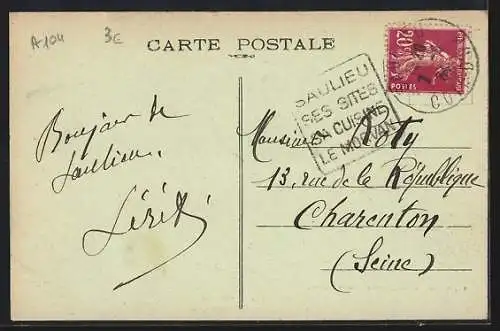 A104 3€
CARTE POSTALE
SAULIEU
SES SITES
SA CUISINE
LE MORVAN
20c
POSTES
Bonjour de
Saulieu.
Monsieur Doty
13, rue de la République
Charenton
(Seine)